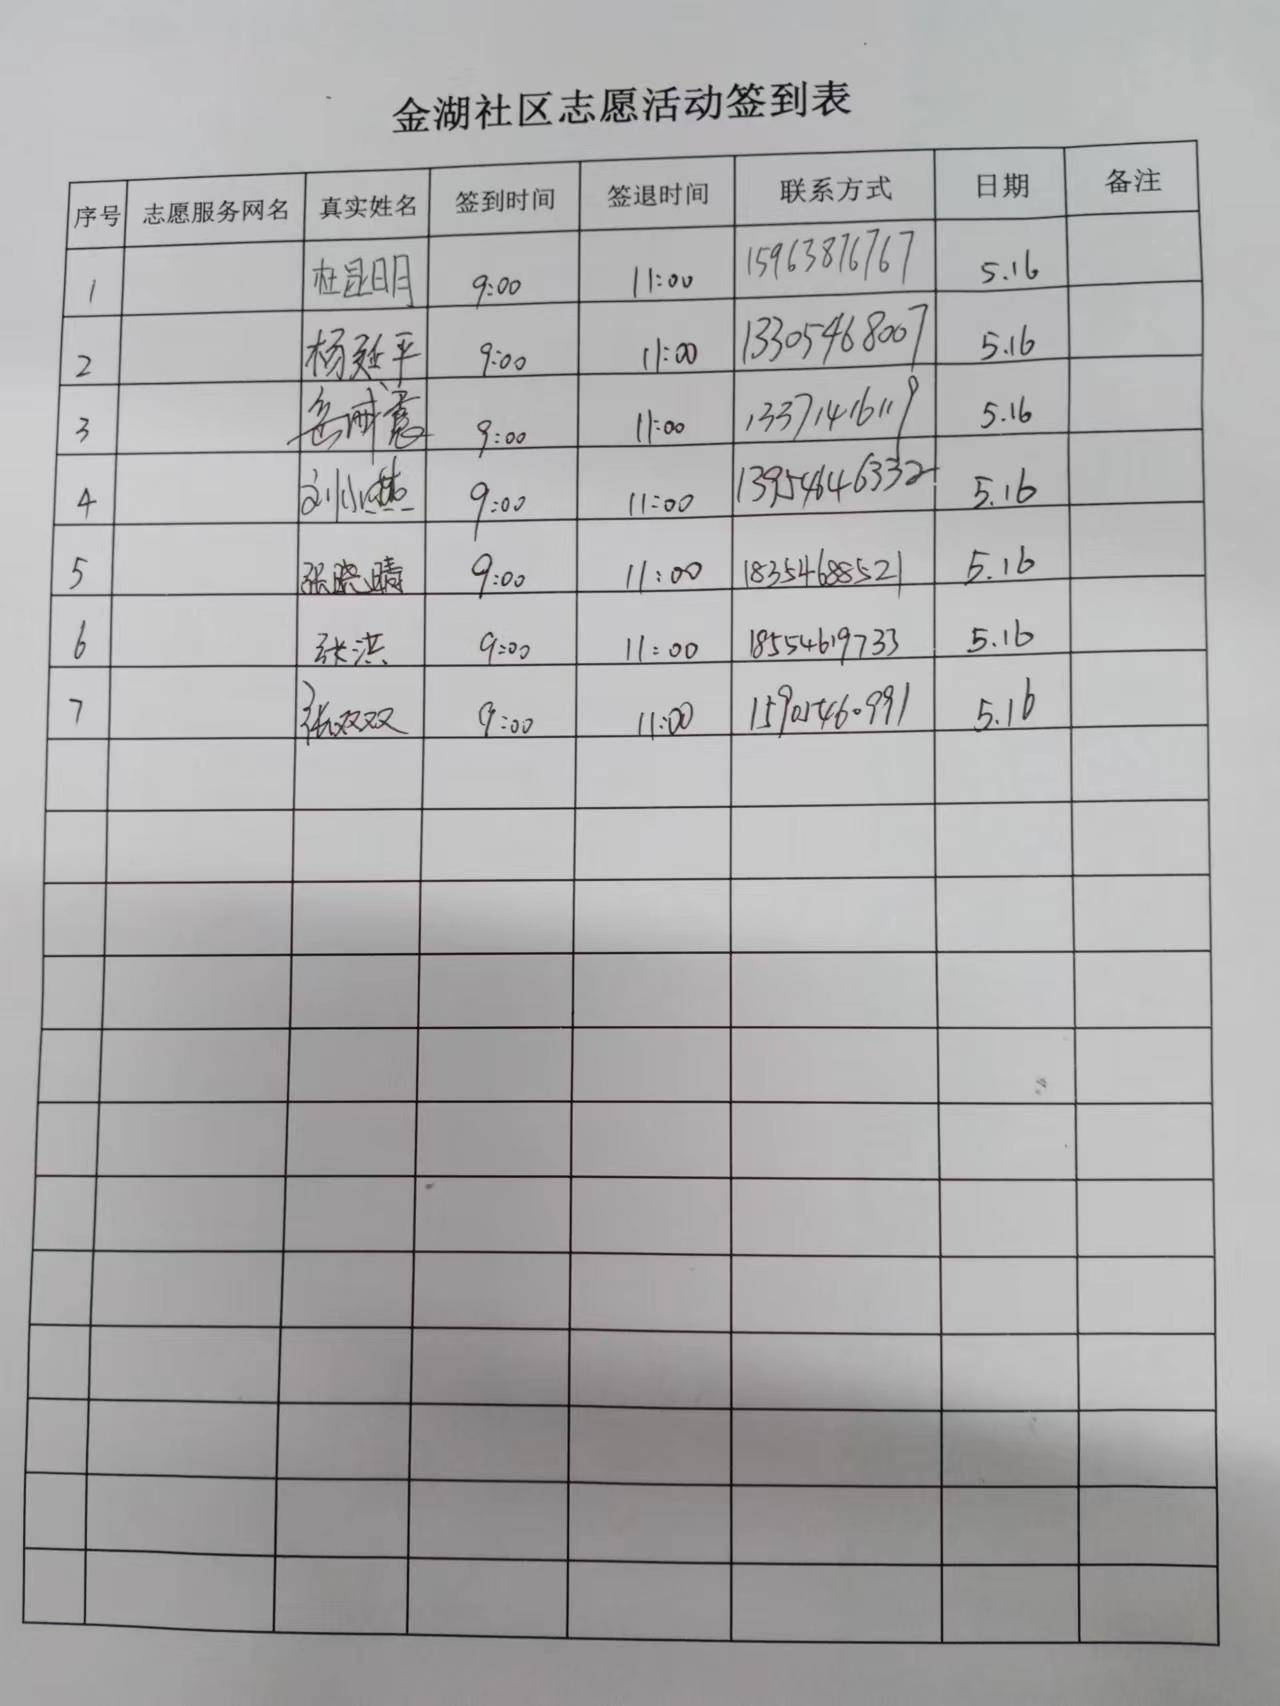 金湖社区志愿活动签到表
序号 志愿服务网名 真实姓名 签到时间 签退时间 联系方式 日期 备注
1 杜昆明 9:00 11:00 15963876767 5.16
2 杨延平 9:00 11:00 13305468007 5.16
3 9:00 11:00 13371416119 5.16
4 刘小燕 9:00 11:00 13954646332 5.16
5 张晓晴 9:00 11:00 18354688521 5.16
6 张洪 9:00 11:00 18554619733 5.16
7 张双双 9:00 11:00 5.16